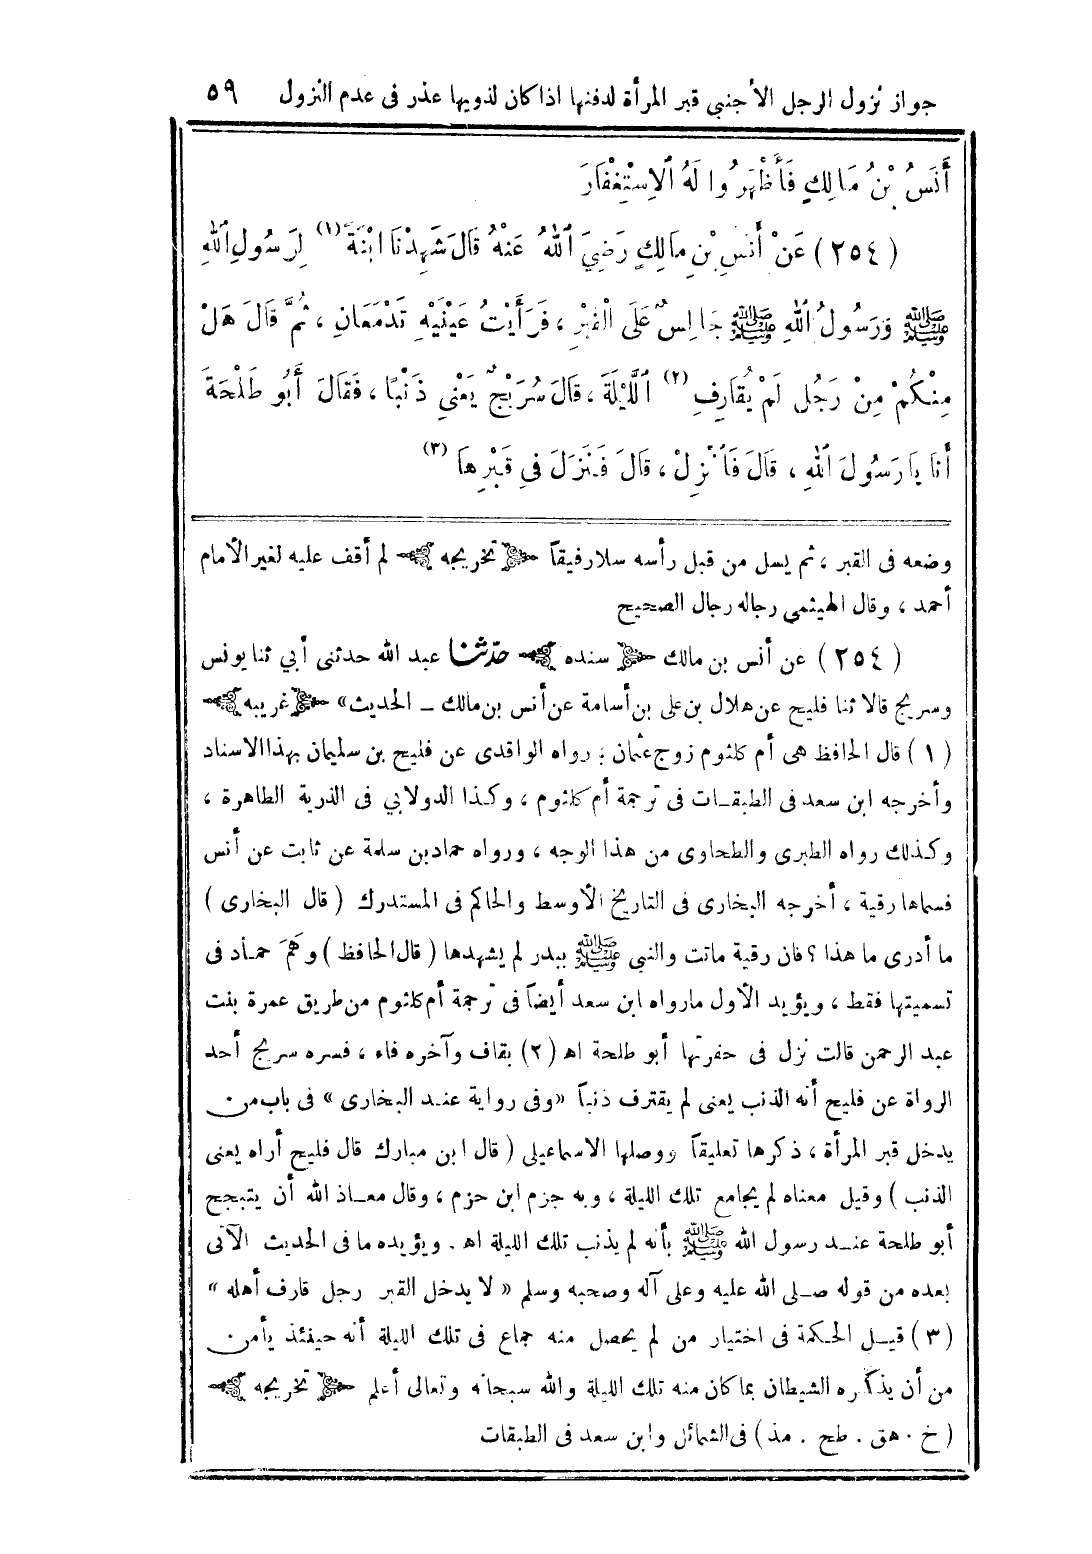 جواز نزول الرجل الأجنبى قبر المرأة لدفنها اذا كان لذويها عذر فى عدم النزول ٥٩
أَنَسُ بْنُ مَالِكٍ فَأَظْهَرُوا لَهُ الِاسْتِغْفَارَ
(٢٥٤) عَنْ أَنَسِ بْنِ مَالِكٍ رَضِيَ اللهُ عَنْهُ قَالَ شَهِدْنَا ابْنَةً (١) لِرَسُولِ اللهِ
ﷺ وَرَسُولُ اللهِ ﷺ جَالِسٌ عَلَى الْقَبْرِ ، فَرَأَيْتُ عَيْنَيْهِ تَدْمَعَانِ ، ثُمَّ قَالَ هَلْ
مِنْكُمْ مِنْ رَجُلٍ لَمْ يُقَارِفِ (٢) اللَّيْلَةَ ، قَالَ سُرَيْجٌ يَعْنِي ذَنْبًا ، فَقَالَ أَبُو طَلْحَةَ
أَنَا يَا رَسُولَ اللهِ ، قَالَ فَانْزِلْ ، قَالَ فَنَزَلَ فِي قَبْرِهَا (٣)
وضعه فى القبر ، ثم يسل من قبل رأسه سلا رفيقاً ﴿ تخريجه ﴾ لم أقف عليه لغير الأمام
أحمد ، وقال الهيثمى رجاله رجال الصحيح
(٢٥٤) عن أنس بن مالك ﴿ سنده ﴾ حدّثنا عبد الله حدثنى أبي ثنا يونس
وسريج قالا ثنا فليح عن هلال بن على بن أسامة عن أنس بن مالك ــ الحديث» ﴿ غريبه ﴾
(١) قال الحافظ هى أم كلثوم زوج عثمان ؛ رواه الواقدى عن فليح بن سليمان بهذا الاسناد
وأخرجه ابن سعد فى الطبقات فى ترجمة أم كلثوم ، وكذا الدولابي فى الذرية الطاهرة ،
وكذلك رواه الطبرى والطحاوى من هذا الوجه ، ورواه حماد بن سلمة عن ثابت عن أنس
فسماها رقية ، أخرجه البخارى فى التاريخ الأوسط والحاكم فى المستدرك (قال البخارى)
ما أدرى ما هذا ؟ فان رقية ماتت والنبى ﷺ ببدر لم يشهدها (قال الحافظ) وهَمَ حماد فى
تسميتها فقط ، ويؤيد الأول مارواه ابن سعد أيضاً فى ترجمة أم كلثوم من طريق عمرة بنت
عبد الرحمن قالت نزل فى حفرتها أبو طلحة اهـ (٢) بقاف وآخره فاء ، فسره سريج أحد
الرواة عن فليح أنه الذنب يعنى لم يقترف ذنباً «وفى رواية عند البخارى» فى باب من
يدخل قبر المرأة ، ذكرها تعليقاً ووصلها الاسماعيلى (قال ابن مبارك قال فليح أراه يعنى
الذنب) وقيل معناه لم يجامع تلك الليلة ، وبه جزم ابن حزم ، وقال معاذ الله أن يتبجح
أبو طلحة عند رسول الله ﷺ بأنه لم يذنب تلك الليلة اهـ. ويؤيده ما فى الحديث الآتى
بعده من قوله صلى الله عليه وعلى آله وصحبه وسلم « لا يدخل القبر رجل قارف أهله »
(٣) قيل الحكمة فى اختيار من لم يحصل منه جماع فى تلك الليلة أنه حينئذ يأمن
من أن يذكره الشيطان بما كان منه تلك الليلة والله سبحانه وتعالى أعلم ﴿ تخريجه ﴾
(خ . هق . طح . مذ) فى الشمائل وابن سعد فى الطبقات